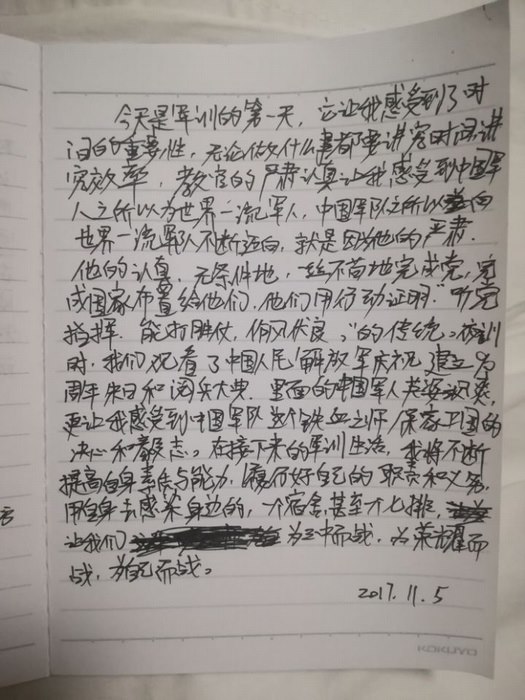 今天是军训的第一天，它让我感受到了时
间的重要性，无论做什么事都要讲究时间讲
究效率，教官的严肃认真让我感受到中国军
人之所以为世界一流军人，中国军队之所以迈向
世界一流军队不断迈向，就是因为他的严肃.
他的认真，无条件地，一丝不苟地完成党，完
成国家布置给他们，他们用行动证明"听党
指挥.能打胜仗，作风优良，"的传统。夜训
时，我们观看了中国人民解放军庆祝建立90
周年朱日和阅兵大典.里面的中国军人英姿飒爽，
更让我感受到中国军队这个铁血之师保家卫国的
决心和毅志。在接下来的军训生活，我将不断
提高自身素质与能力，履行好自己的职责和义务，
用自身去感染身边的，一个宿舍，甚至一个七排，
让我们为三中而战，为荣耀而
战，为自己而战。
2017.11.5
KOKUYO